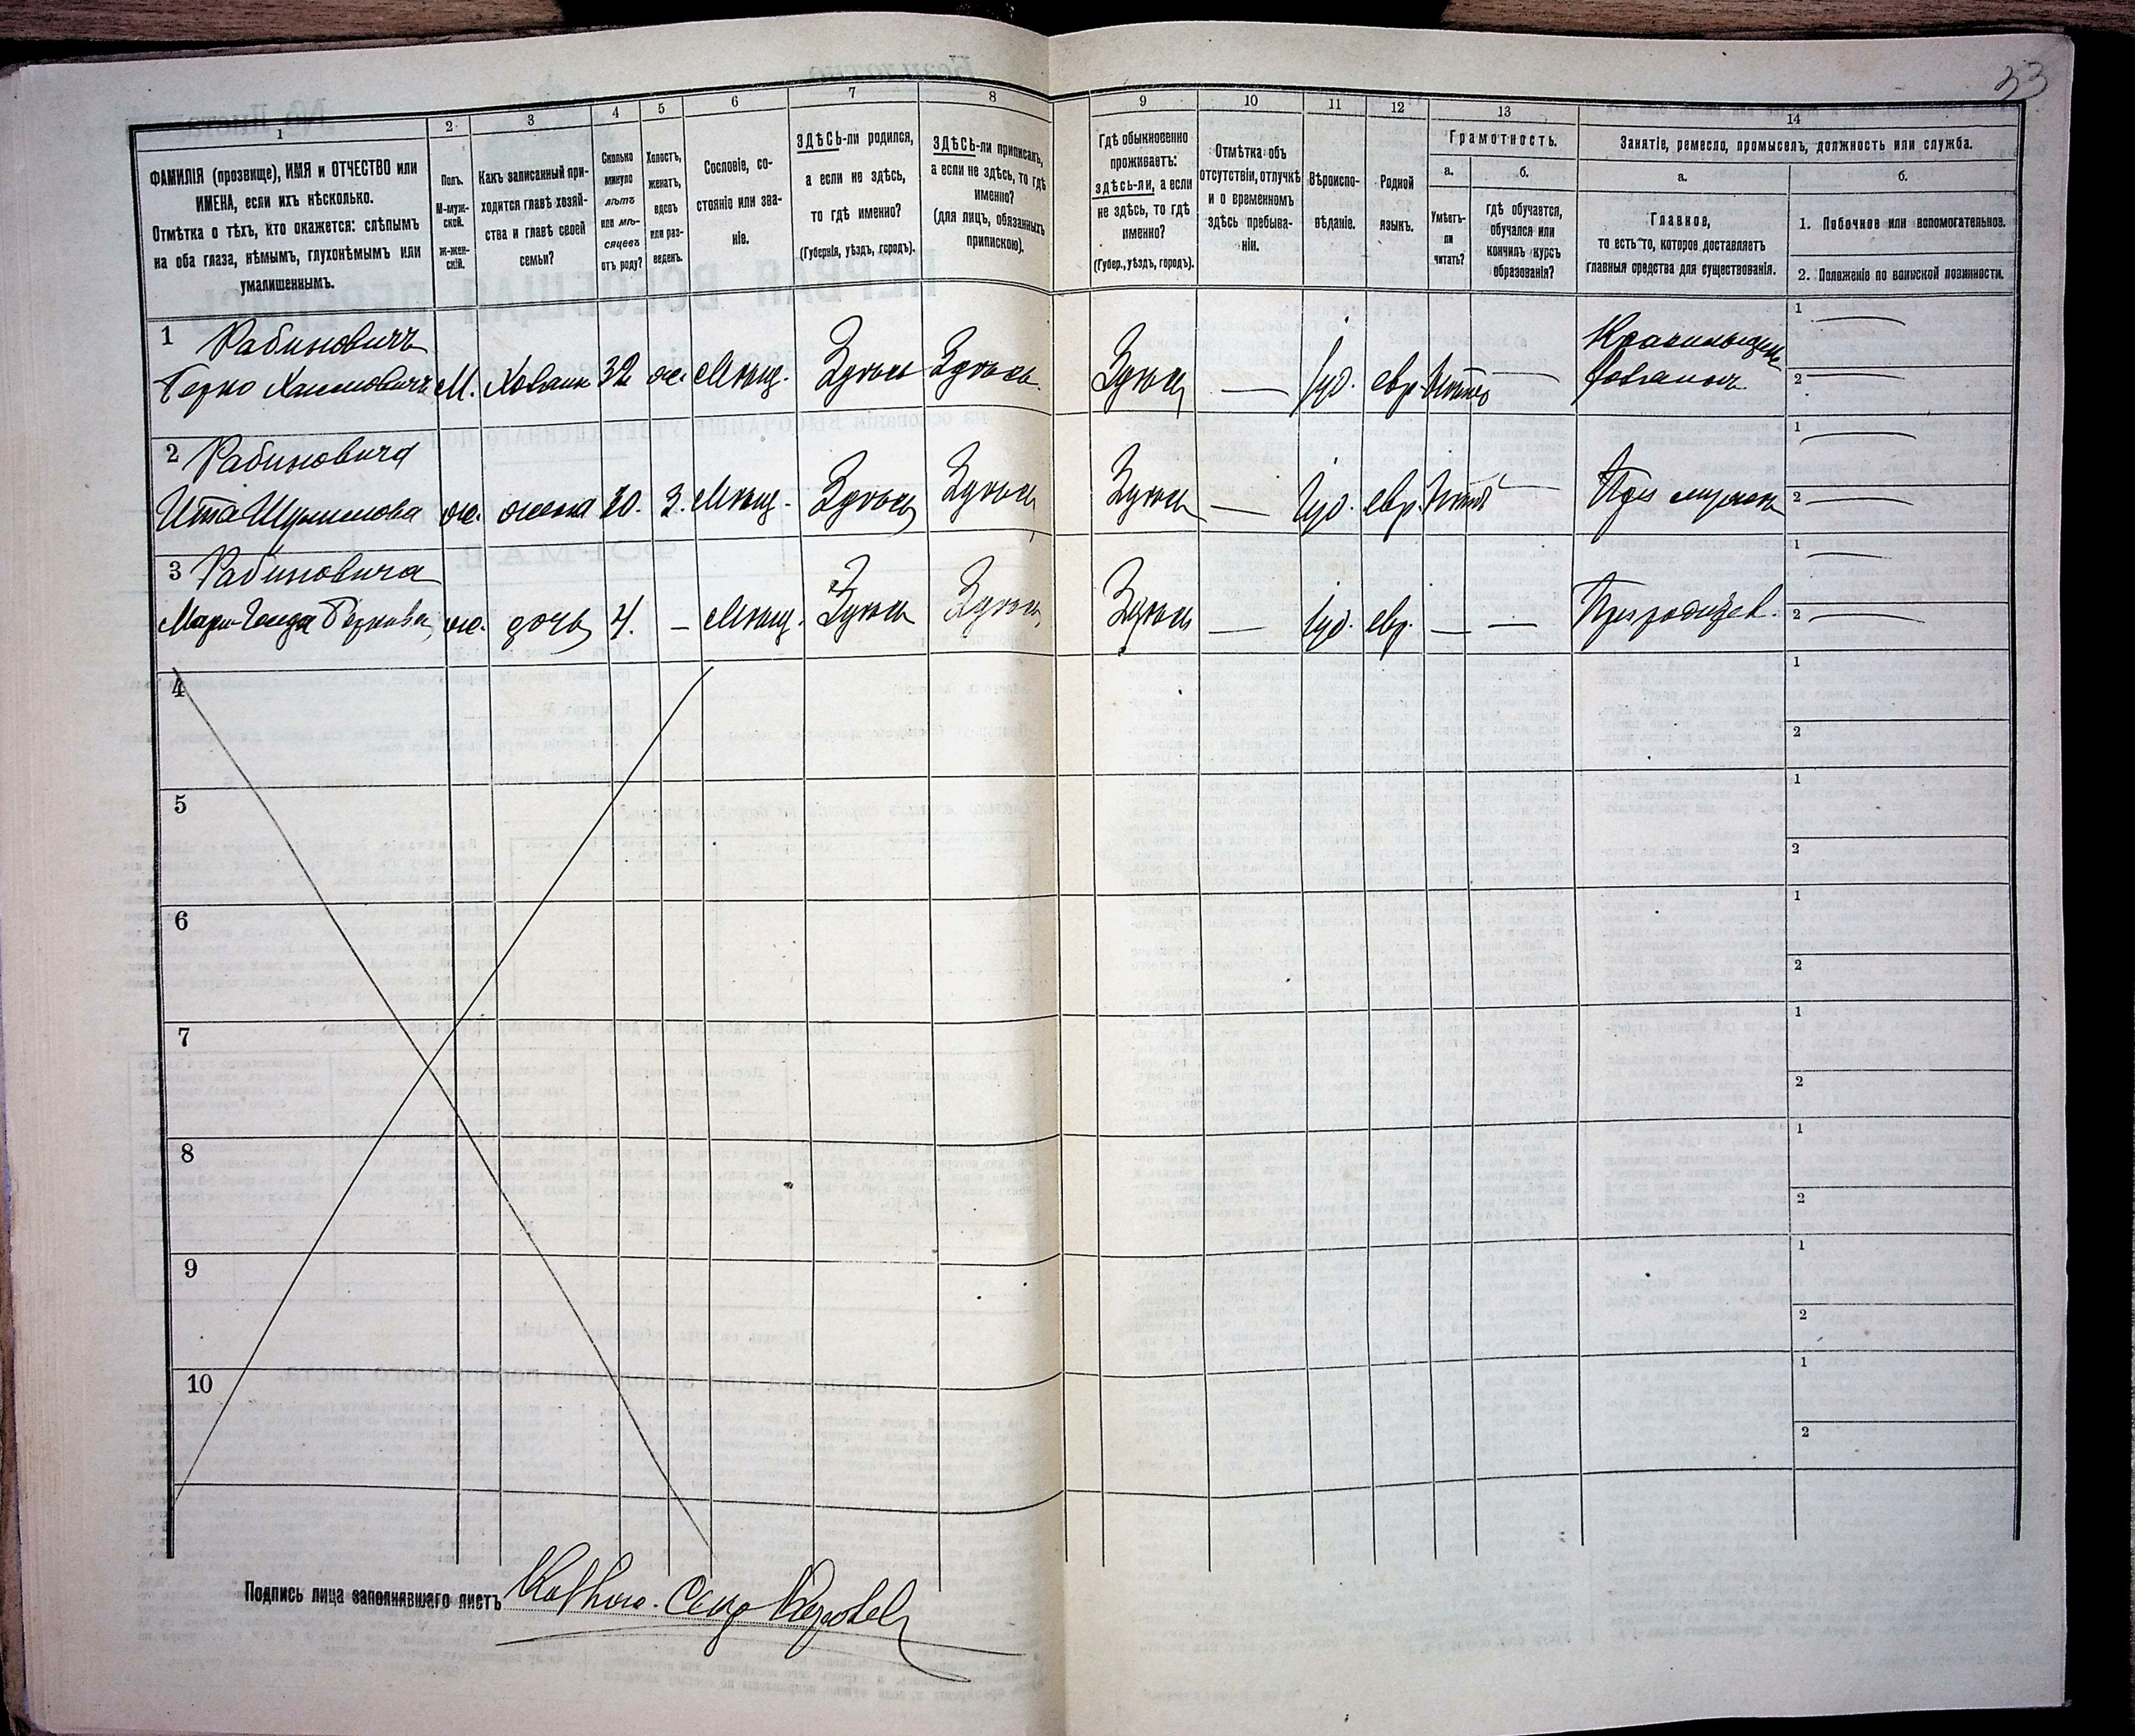 33
1
2
3
4
5
6
7
8
9
10
11
12
13
14
ФАМИЛІЯ (прозвище), ИМЯ и ОТЧЕСТВО или
ИМЕНА, если ихъ нѣсколько.
Отмѣтка о тѣхъ, кто окажется: слѣпымъ
на оба глаза, нѣмымъ, глухонѣмымъ или
умалишеннымъ.
Полъ.
М-муж-
ской.
ж-жен-
скій.
Какъ записанный при-
ходится главѣ хозяй-
ства и главѣ своей
семьи?
Сколько
минуло
лѣтъ
или мѣ-
сяцевъ
отъ роду?
Холостъ,
женатъ,
вдовъ
или раз-
веденъ.
Сословіе, со-
стояніе или зва-
ніе.
ЗДѢСЬ-ли родился,
а если не здѣсь,
то гдѣ именно?
(Губернія, уѣздъ, городъ).
ЗДѢСЬ-ли приписанъ,
а если не здѣсь, то гдѣ
именно?
(для лицъ, обязанныхъ
припискою).
Гдѣ обыкновенно
проживаетъ:
здѣсь-ли, а если
не здѣсь, то гдѣ
именно?
(Губер., уѣздъ, городъ).
Отмѣтка объ
отсутствіи, отлучкѣ
и о временномъ
здѣсь пребыва-
ніи.
Вѣроиспо-
вѣданіе.
Родной
языкъ.
Грамотность.
а.
Умѣетъ-
ли
читать?
б.
гдѣ обучается,
обучался или
кончилъ курсъ
образованія?
Занятіе, ремесло, промыселъ, должность или служба.
а.
Главное,
то есть то, которое доставляетъ
главныя средства для существованія.
б.
1. Побочное или вспомогательное.
2. Положеніе по воинской повинности.
1 Рабиновичъ
Берко Хаимовичъ М. Хозяин 32 ж. Мѣщ. Здѣсь Здѣсь Здѣсь — Іуд. евр. —
1 —
2 —
2 Рабиновича
Ита Шулимова ж. жена 30. З. Мѣщ. Здѣсь Здѣсь Здѣсь — Іуд. евр. — При мужѣ
1 —
2 —
3 Рабиновича
Беркова ж. дочь 4. — Мѣщ. Здѣсь Здѣсь Здѣсь — Іуд. евр. — — При родител.
1 —
2 —
4
1
2
5
1
2
6
1
2
7
1
2
8
1
2
9
1
2
10
1
2
Подпись лица заполнявшаго листъ